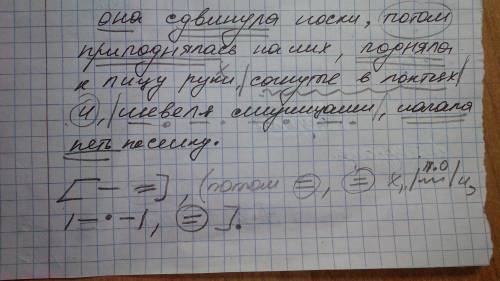 она сдвинула носки, потом
приподнялась на них, подняла
к лицу руки, /согнутые в локтях/
и, /шевеля ступицами/, начала
петь песенку.
[— =], (потом =, = х, /п.о/ и,
/—·—/, = ].